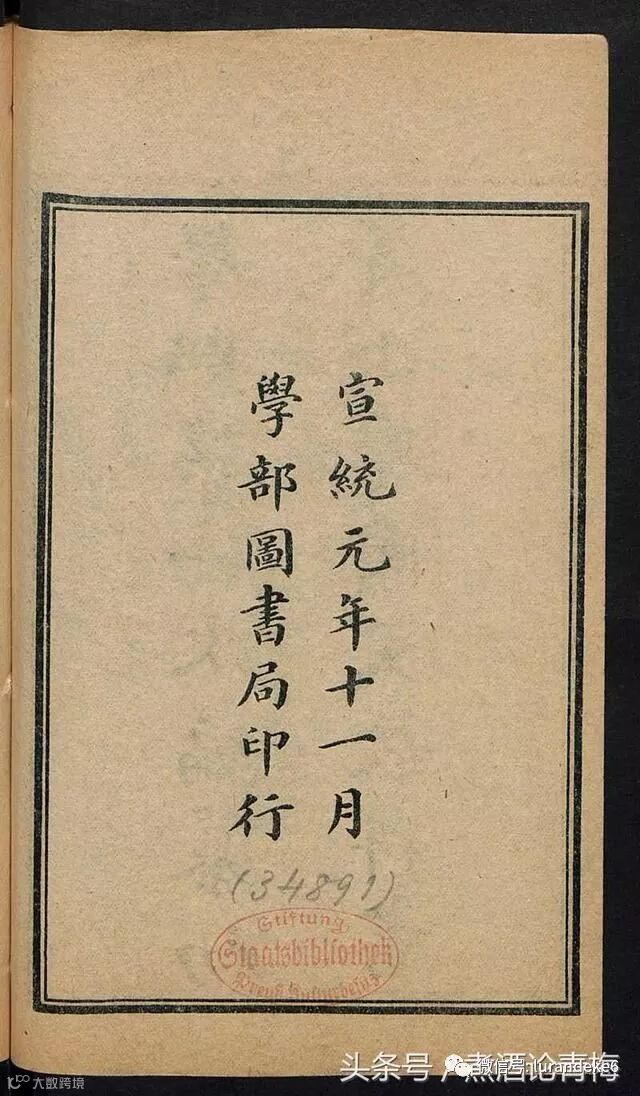 宣統元年十一月
學部圖書局印行
(34891)
Stiftung
Staatsbibliothek
Preuß. Kulturbesitz
头条号 / 煮酒论青梅
微信号: lurandeke6
大数跨境